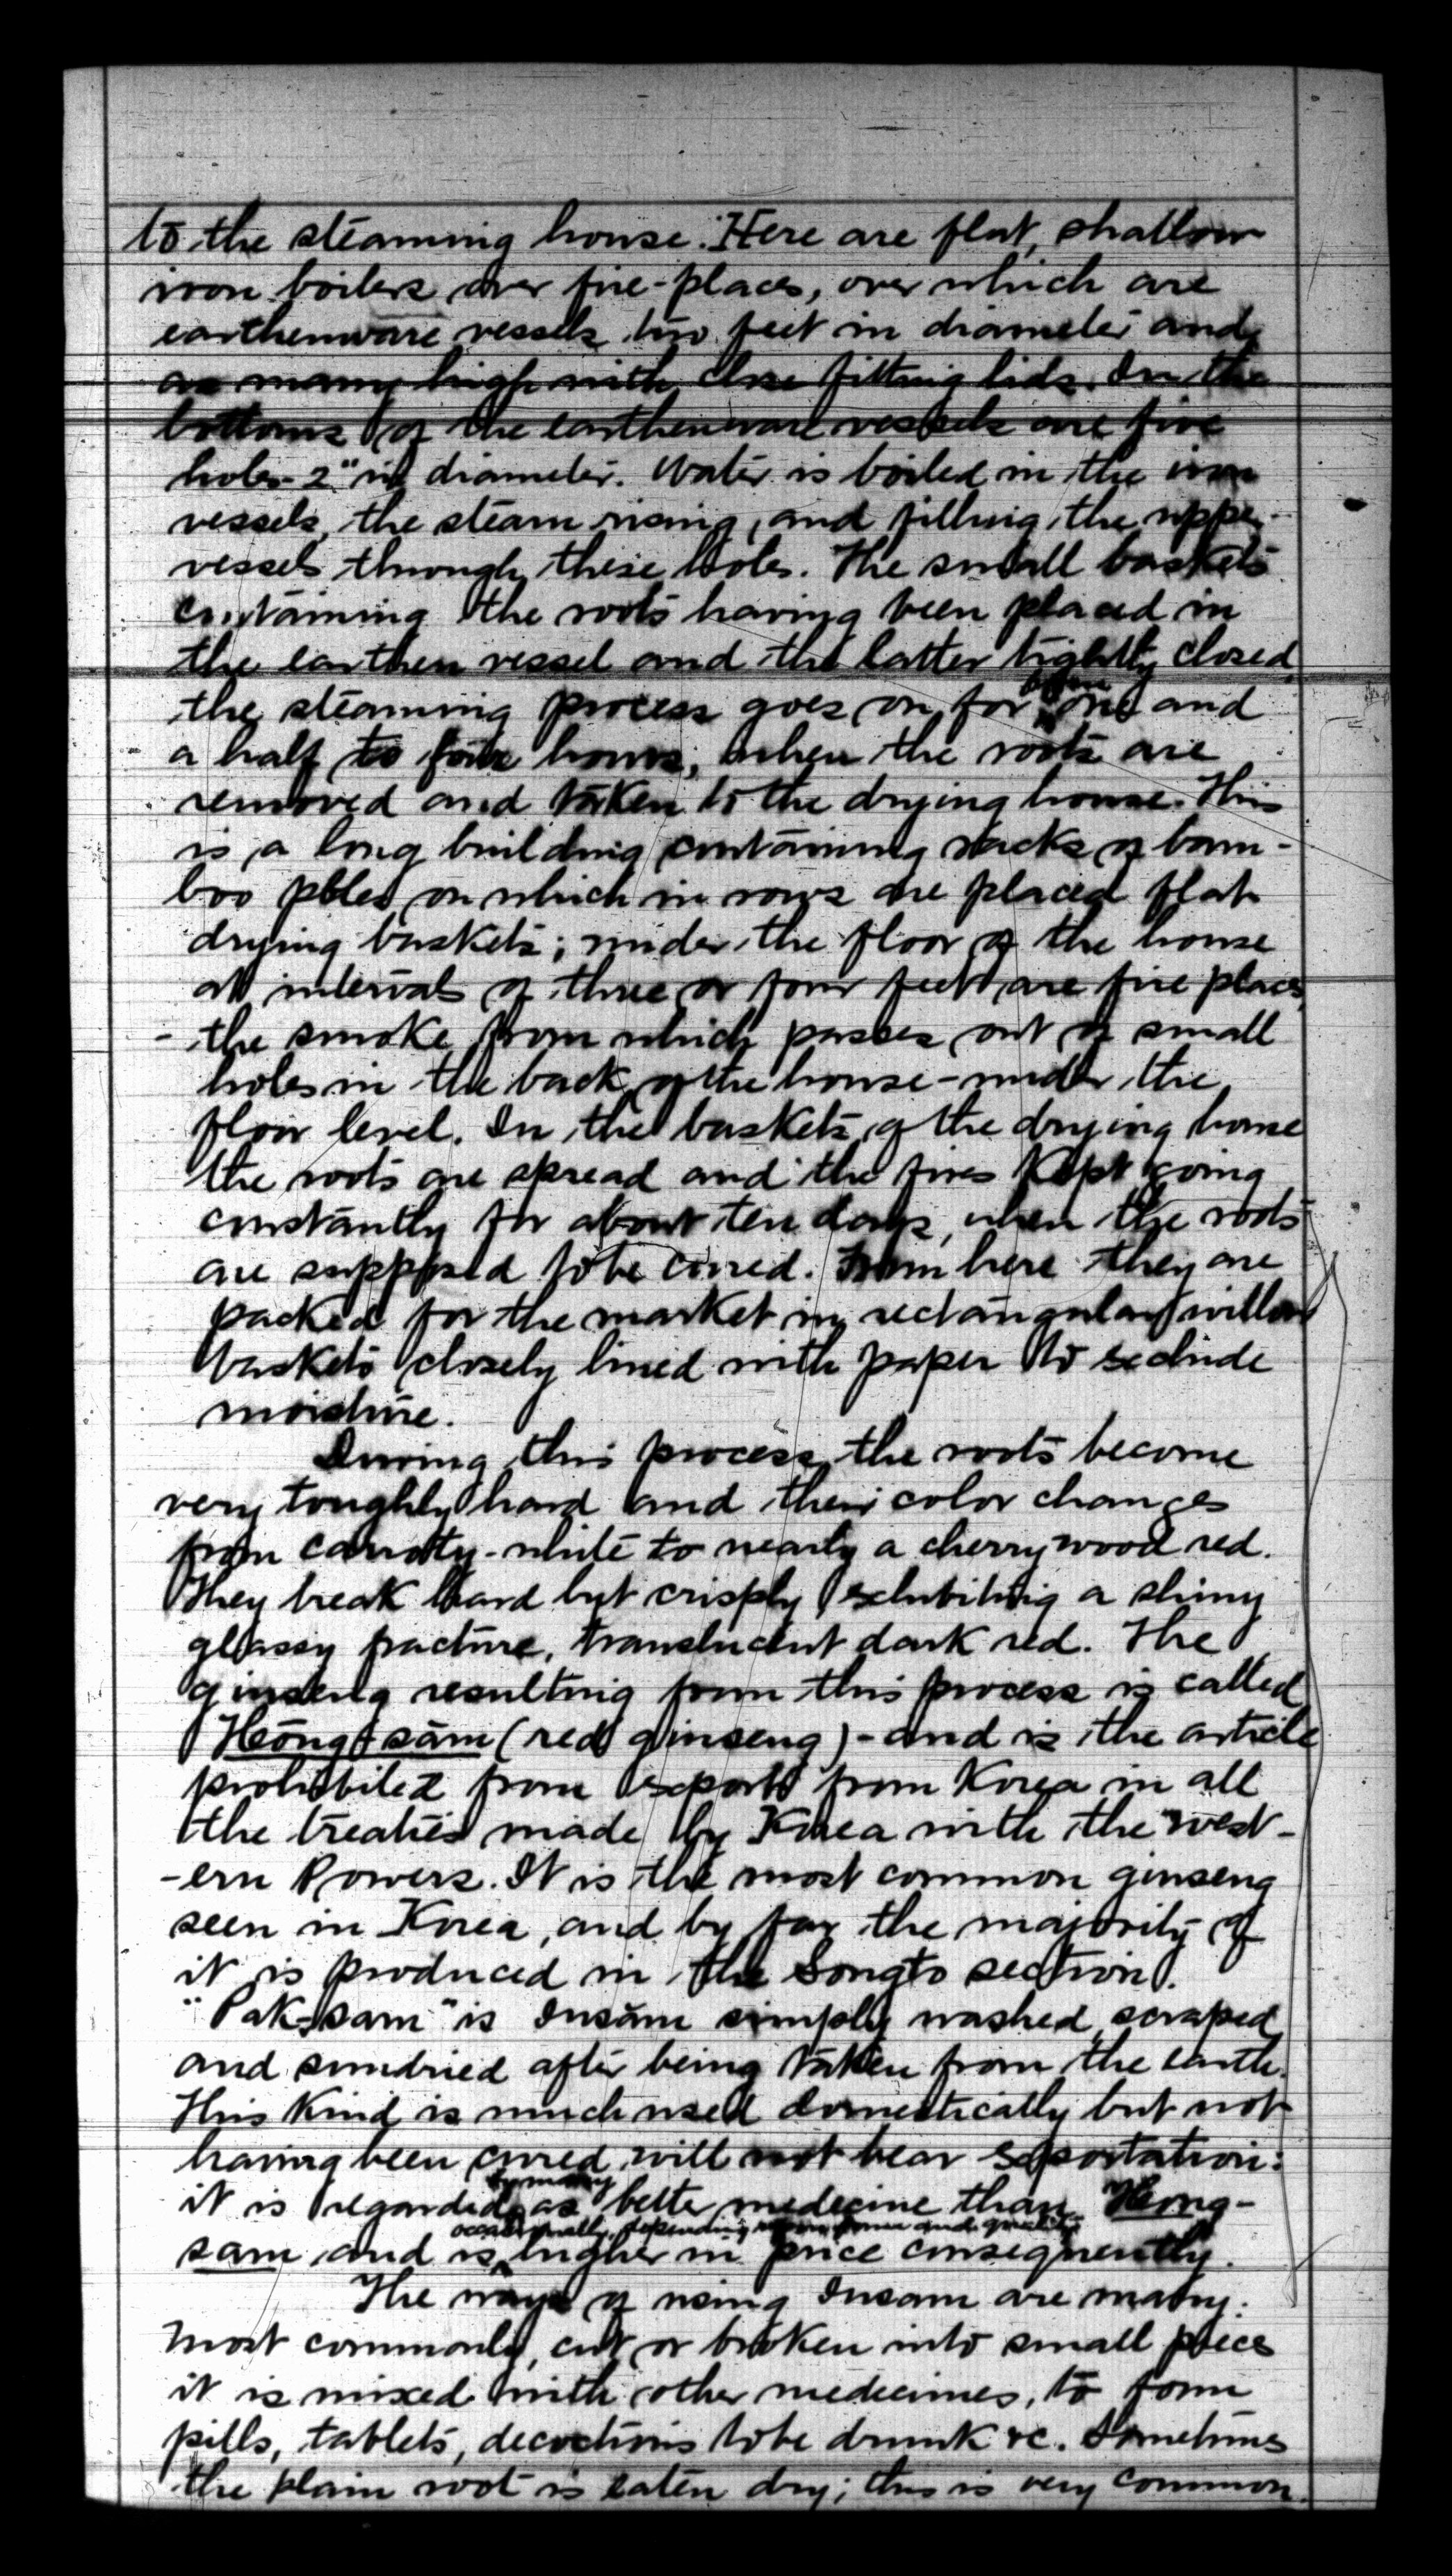 to the steaming house. Here are flat, shallow
iron boilers over fire-places, over which are
earthenware vessels two feet in diameter and
as many high with close fitting lids. In the
bottoms of the earthenware vessels are five
holes 2" in diameter. Water is boiled in the iron
vessels, the steam rising, and filling the upper
vessels through these holes. The small baskets
containing the roots having been placed in
the earthen vessel and the latter tightly closed,
the steaming process goes on for one and
a half to four hours, when the roots are
removed and taken to the drying house. This
is a long building containing racks of bam-
boo poles on which in rows are placed flat
drying baskets; under the floor of the house
at intervals of three or four feet are fire places
- the smoke from which passes out of small
holes in the back of the house - under the
floor level. In the baskets of the drying house
the roots are spread and the fires kept going
constantly for about ten days, when the roots
are supposed to be cured. From here they are
packed for the market in rectangular willow
baskets closely lined with paper to seclude
moisture.
During this process the roots become
very toughly hard and their color changes
from carroty-white to nearly a cherry wood red.
They break hard but crisply exhibiting a shiny
glassy fracture, translucent dark red. The
ginseng resulting from this process is called
Hong-sam (red ginseng) - and is the article
prohibited from export from Korea in all
the treaties made by Korea with the west-
-ern Powers. It is the most common ginseng
seen in Korea, and by far the majority of
it is produced in the Songto section.
"Pak-sam" is Insam simply washed, scraped
and sundried after being taken from the earth.
This kind is much used domestically but not
having been cured will not bear exportation:
it is regarded by many as better medecine than Hong-
sam and is occasionally, depending upon form and quality higher in price consequently.
The ways of using Insam are many.
Most commonly, cut or broken into small pieces
it is mixed with other medecines, to form
pills, tablets, decoctions to be drunk &c. Sometimes
the plain root is eaten dry; this is very common.